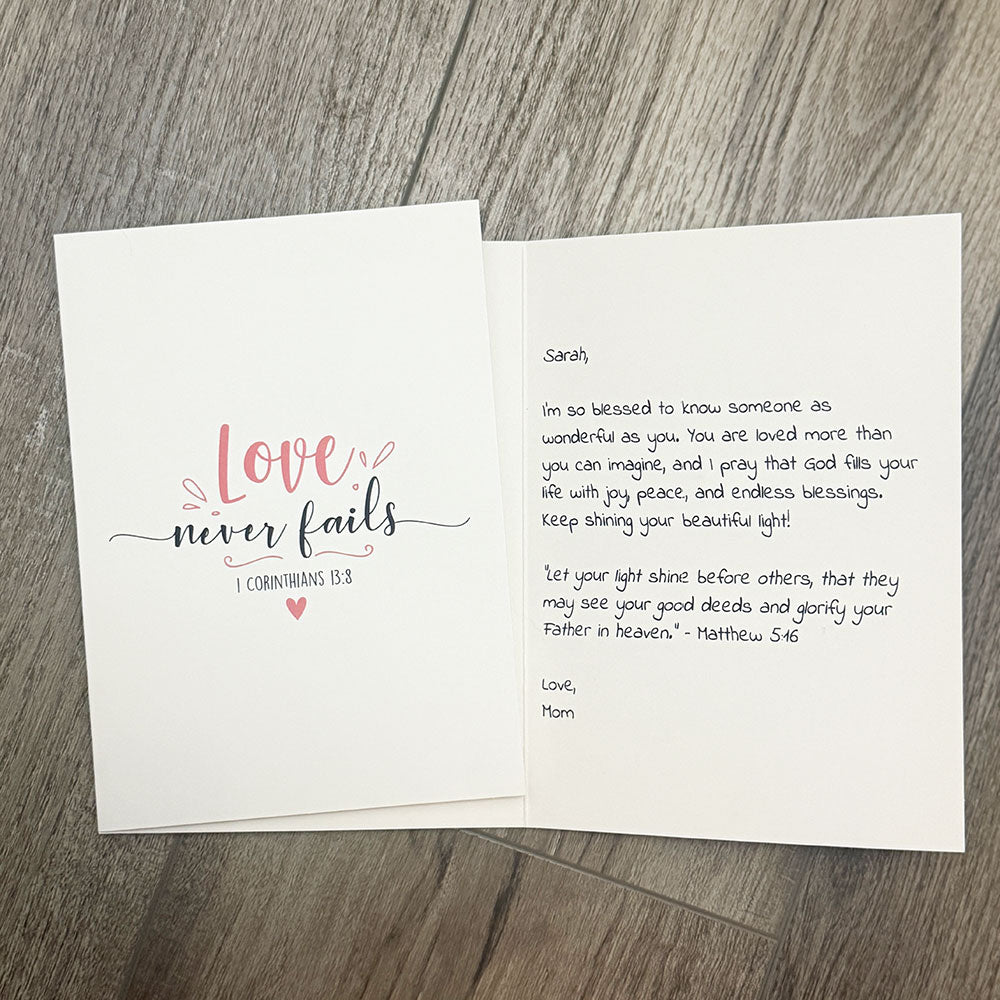 Love
never fails
1 CORINTHIANS 13:8
Sarah,
I'm so blessed to know someone as
wonderful as you. You are loved more than
you can imagine, and I pray that God fills your
life with joy, peace, and endless blessings.
Keep shining your beautiful light!
"Let your light shine before others, that they
may see your good deeds and glorify your
Father in heaven." - Matthew 5:16
Love,
Mom